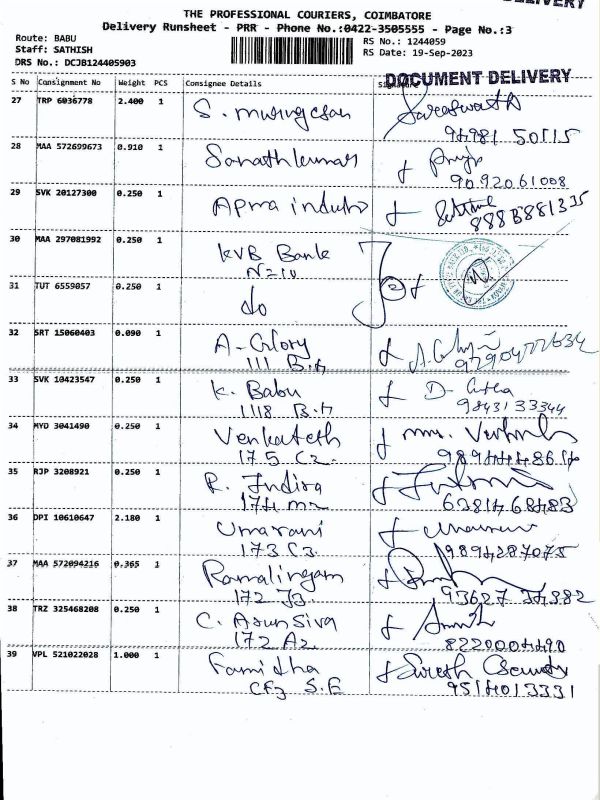 DELIVERY
THE PROFESSIONAL COURIERS, COIMBATORE
Delivery Runsheet - PRR - Phone No.:0422-3505555 - Page No.:3
Route: BABU
RS No.: 1244059
Staff: SATHISH
RS Date: 19-Sep-2023
DRS No.: DCJB124405903
DOCUMENT DELIVERY
S No Consignment No Weight PCS Consignee Details
27 TRP 6036778 2.400 1 S. Murugesan
94981 50115
28 MAA 572699673 0.910 1 Sarathkumar
9092061008
29 SVK 20127300 0.250 1 Apma
30 MAA 297081992 0.250 1 KVB Bank
31 TUT 6559057 0.250 1 do 2
32 SRT 15060403 0.090 1 A-Glory
111 B.H
33 SVK 10423547 0.250 1 K. Babu D-
1118 B.H 9843133344
34 MYD 3041490 0.250 1 Venkatesh mm.
175 C2
35 RJP 3208921 0.250 1 R. Indira
174 6381468483
36 DPI 10610647 2.180 1 Umarani
173 C3 9894287075
37 MAA 572094216 0.365 1 Ramalingam
172 93627 34382
38 TRZ 325468208 0.250 1 C. Arun Siva
172 A2 8220004490
39 VPL 521022028 1.000 1 Famitha Suresh
S.E 9514013331